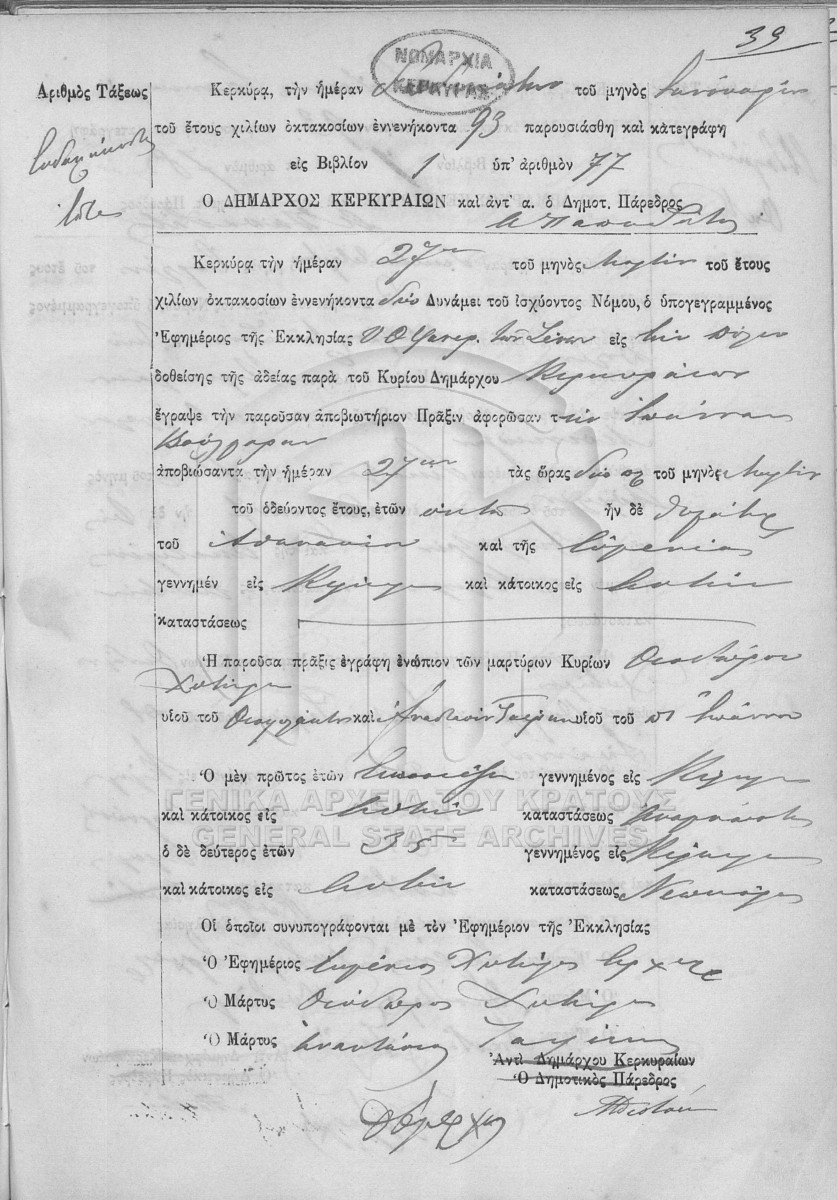 39
ΝΟΜΑΡΧΙΑ
ΚΕΡΚΥΡΑΣ
Ἀριθμὸς Τάξεως
Κερκύρᾳ, τὴν ἡμέραν τοῦ μηνὸς Ἰανουαρίου
τοῦ ἔτους χιλίων ὀκτακοσίων ἐννενήκοντα 93 παρουσιάσθη καὶ κατεγράφη
εἰς Βιβλίον 1 ὑπ' ἀριθμὸν 77
Ο ΔΗΜΑΡΧΟΣ ΚΕΡΚΥΡΑΙΩΝ καὶ ἀντ' α. ὁ Δημοτ. Πάρεδρος
Κερκύρᾳ τὴν ἡμέραν 27ην τοῦ μηνὸς τοῦ ἔτους
χιλίων ὀκτακοσίων ἐννενήκοντα δύο Δυνάμει τοῦ ἰσχύοντος Νόμου, ὁ ὑπογεγραμμένος
Ἐφημέριος τῆς Ἐκκλησίας τῶν Ξένων εἰς τὴν πόλιν
δοθείσης τῆς ἀδείας παρὰ τοῦ Κυρίου Δημάρχου Κερκυραίων
ἔγραψε τὴν παροῦσαν ἀποβιωτήριον Πρᾶξιν ἀφορῶσαν τὴν Ἰωάνναν
Βούλγαραν
ἀποβιώσαντα τὴν ἡμέραν 27ην τὰς ὥρας δύο τοῦ μηνὸς
τοῦ ὁδεύοντος ἔτους, ἐτῶν ὀκτὼ ἦν δὲ θυγάτηρ
τοῦ Ἀθανασίου καὶ τῆς Εὐγενίας
γεννημέν εἰς Κέρκυραν καὶ κάτοικος εἰς αὐτὴν
καταστάσεως
Ἡ παροῦσα πρᾶξις ἐγράφη ἐνώπιον τῶν μαρτύρων Κυρίων Θεοδώρου
Χυτήρη
υἱοῦ τοῦ Θεοφυλάκτου καὶ Ἀναστασίου υἱοῦ τοῦ π Ἰωάννου
Ὁ μὲν πρῶτος ἐτῶν γεννημένος εἰς Κέρκυραν
καὶ κάτοικος εἰς αὐτὴν καταστάσεως
ὁ δὲ δεύτερος ἐτῶν 35 γεννημένος εἰς Κέρκυραν
καὶ κάτοικος εἰς αὐτὴν καταστάσεως Νεωκόρος
Οἱ ὁποῖοι συνυπογράφονται μὲ τὸν Ἐφημέριον τῆς Ἐκκλησίας
Ὁ Ἐφημέριος Εὐγένιος Χυτήρης
Ὁ Μάρτυς Θεόδωρος Χυτήρης
Ὁ Μάρτυς Ἀναστάσιος
Ἀντὶ Δημάρχου Κερκυραίων
Ὁ Δημοτικὸς Πάρεδρος
ΓΕΝΙΚΑ ΑΡΧΕΙΑ ΤΟΥ ΚΡΑΤΟΥΣ
GENERAL STATE ARCHIVES